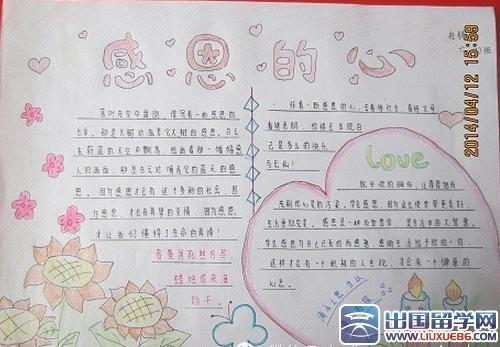 感恩的心
落叶在空中盘旋，谱写着一曲感恩的
乐章，那是大树对滋养它大地的感恩。白云
在蔚蓝的天空中飘荡，绘画着那一幅幅感
人的画面，那是白云对哺育它的蓝天的感
恩。因为感恩才会有这个多彩的社会，因
为感恩，才会有真挚的友情，因为感恩，
才让我们懂得了生命的真谛！
春蚕到死丝方尽
蜡炬成灰泪
始干
怀着一颗感恩的心，去看待社会，看待父母
看待亲朋，你将会发现自
己是多么的快乐
Love
放开你的胸怀，让霏霏细雨
洗刷你心灵的污染。学会感恩，因为这会使世界更美好，
生活更加充实。感恩是一种处世哲学，是生活中的大智慧。
学会感恩为自己已有的而感恩，感谢生活给予你的一切。
这样才会有一个积极的人生观，才会有一个健康的
心态。
滴水之恩当以
2014/04/12 15:59
出国留学网
WWW.LIUXUE86.COM